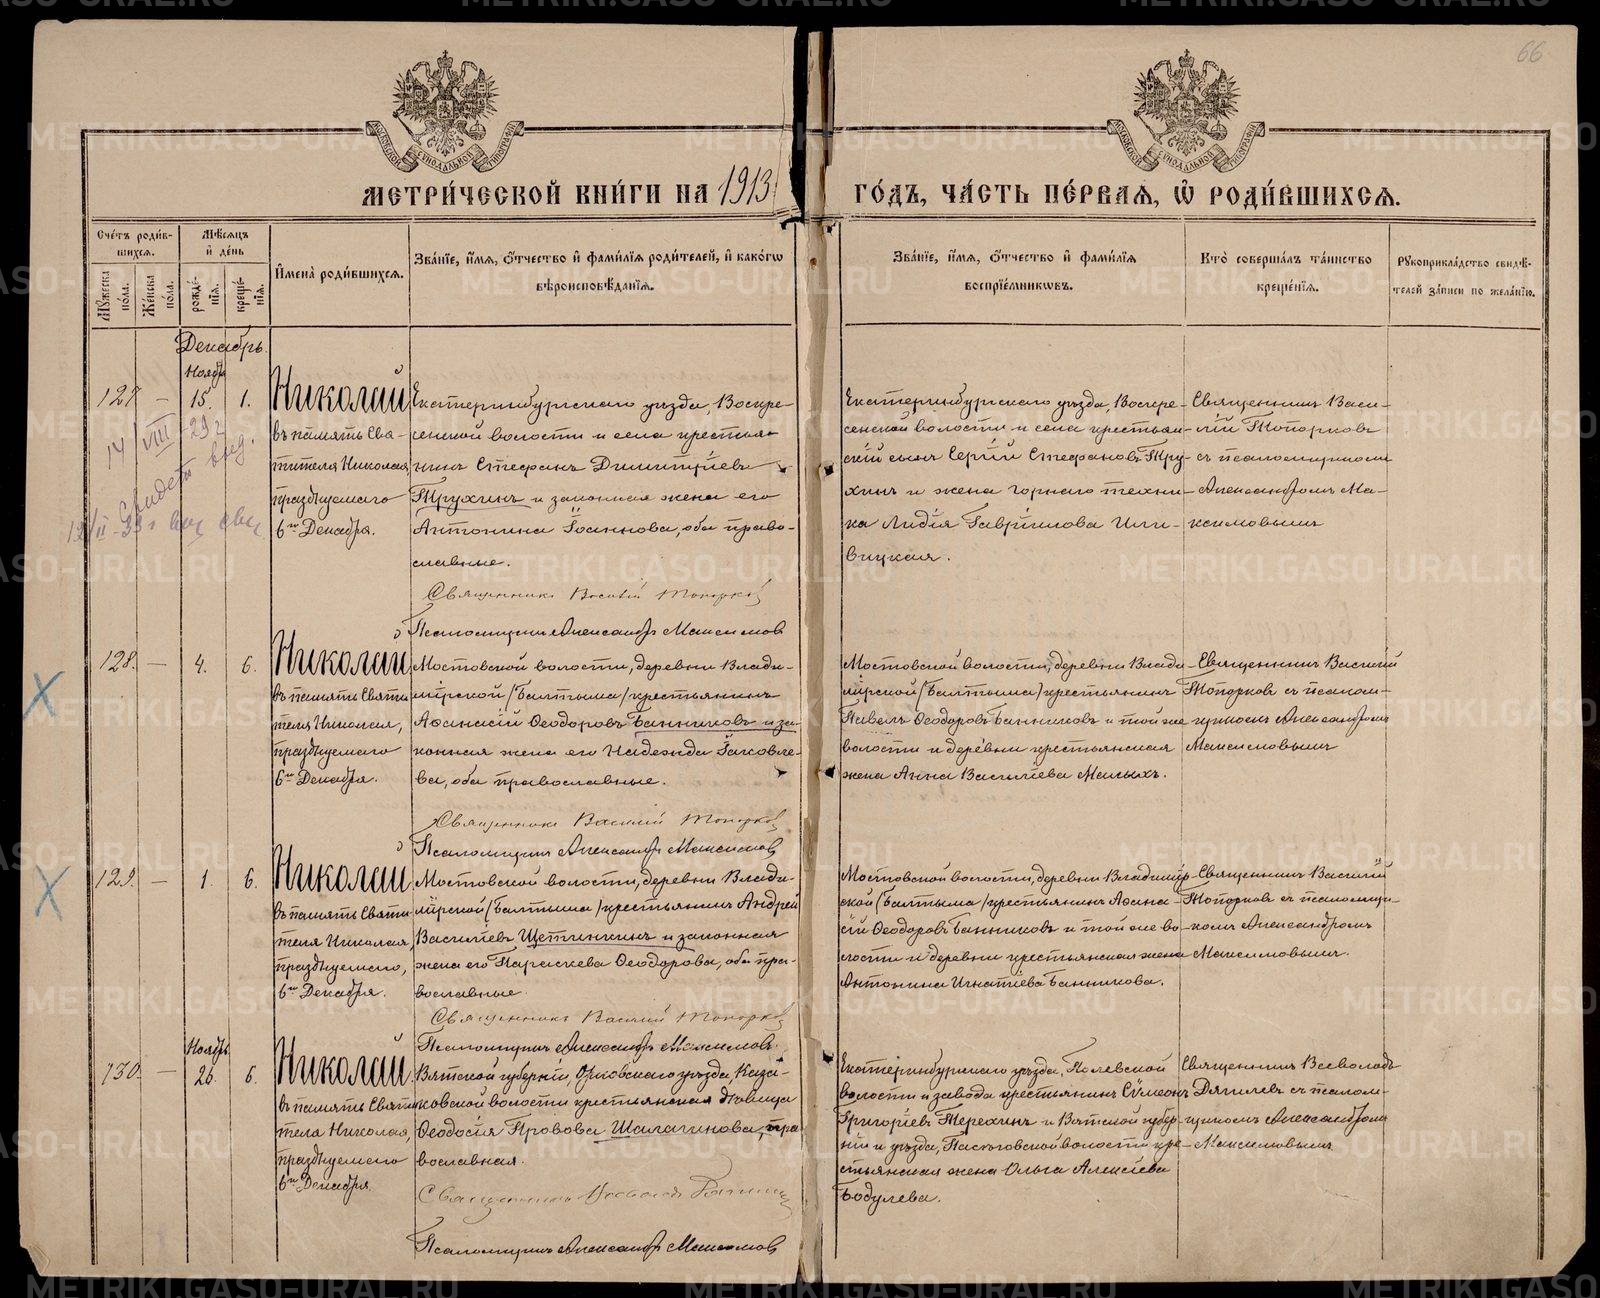 66
МЕТРИ́ЧЕСКОЙ КНИ́ГИ НА 1913
ГО́ДЪ, ЧА́СТЬ ПЕ́РВАѦ, Ѡ҆ РОДИ́ВШИХСѦ.
Сче́тъ роди́в-
шихсѧ.
Мѣ́сѧцъ
и҆ де́нь
Мꙋ́жеска
по́ла.
Же́нска
по́ла.
рожде́-
нїѧ.
креще́-
нїѧ.
И҆мена̀ роди́вшихсѧ.
Зва́нїе, и҆́мѧ, ѻ҆́тчество и҆ фами́лїѧ роди́телей, и҆ како́гѡ
вѣроисповѣ́данїѧ.
Зва́нїе, и҆́мѧ, ѻ҆́тчество и҆ фами́лїѧ
воспрїе́мникѡвъ.
Кто̀ соверша́лъ та́инство
креще́нїѧ.
Рꙋкоприкла́дство свидѣ́-
телей за́писи по жела́нїю.
Декабрь.
Ноябрь
127 — 15. 1.
Николай
въ память Свя-
тителя Николая,
празднуемаго
6го Декабря.
Екатеринбургскаго уѣзда, Воскре-
сенской волости и села крестья-
нинъ Стефанъ Димитріевъ
Трухинъ и законная жена его
Антонина Іоаннова, оба право-
славные.
Священникъ Василій Топорков
Псаломщикъ Александръ Максимов
Екатеринбургскаго уѣзда, Воскре-
сенской волости и села крестьян-
скій сынъ Сергій Стефановъ Тру-
хинъ и жена горнаго техни-
ка Лидія Гавріилова Или-
вицкая.
Священникъ Васи-
лій Топорковъ
съ псаломщикомъ
Александромъ Ма-
ксимовымъ
128. — 4. 6.
Николай
въ память Святи
теля Николая,
празднуемаго
6го Декабря.
Мостовской волости, деревни Влади-
мірской /Балтыма/ крестьянинъ
Аѳанасій Ѳеодоровъ Банниковъ и за-
конная жена его Надежда Іаковле-
ва, оба православные.
Священникъ Василій Топорков
Псаломщикъ Александръ Максимов
Мостовской волости, деревни Влади-
мірской /Балтыма/ крестьянинъ
Павелъ Ѳеодоровъ Банниковъ и той же
волости и деревни крестьянская
жена Анна Васильева Малыхъ.
Священникъ Василий
Топорковъ съ псалом-
щикомъ Александромъ
Максимовымъ
129. — 1. 6.
Николай
въ память Святи
теля Николая
празднуемаго,
6го Декабря.
Мостовской волости, деревни Влади-
мірской /Балтыма/ крестьянинъ Андрей
Васильевъ Щетинкинъ и законная
жена его Параскева Ѳеодорова, оба пра-
вославные.
Священникъ Василий Топорков
Псаломщикъ Александръ Максимовъ.
Мостовской волости, деревни Владимір-
ской /Балтыма/ крестьянинъ Аѳана-
сій Ѳеодоровъ Банниковъ и той же во-
лости и деревни крестьянская жена
Антонина Игнатіева Банникова.
Священникъ Василий
Топорковъ съ псаломщи-
комъ Александромъ
Максимовымъ.
Ноябрь
130. — 26. 6.
Николай
въ память Святи
теля Николая,
празднуемаго
6го Декабря.
Вятской губерніи, Орловскаго уѣзда,
ковской волости крестьянская дѣвица
Ѳеодосія Провова Шалагинова, пра
вославная.
Священникъ Всеволодъ
Псаломщикъ Александръ Максимов
Екатеринбургскаго уѣзда, Полевской
волости и завода крестьянинъ Сѵмеонъ
Григоріевъ Терехинъ и Вятской губер-
ніи и уѣзда, волости кре-
стьянская жена Ольга Алексіева
Бодулева.
Священникъ Всеволодъ
Дягилевъ съ псалом-
щикомъ Александромъ
Максимовымъ